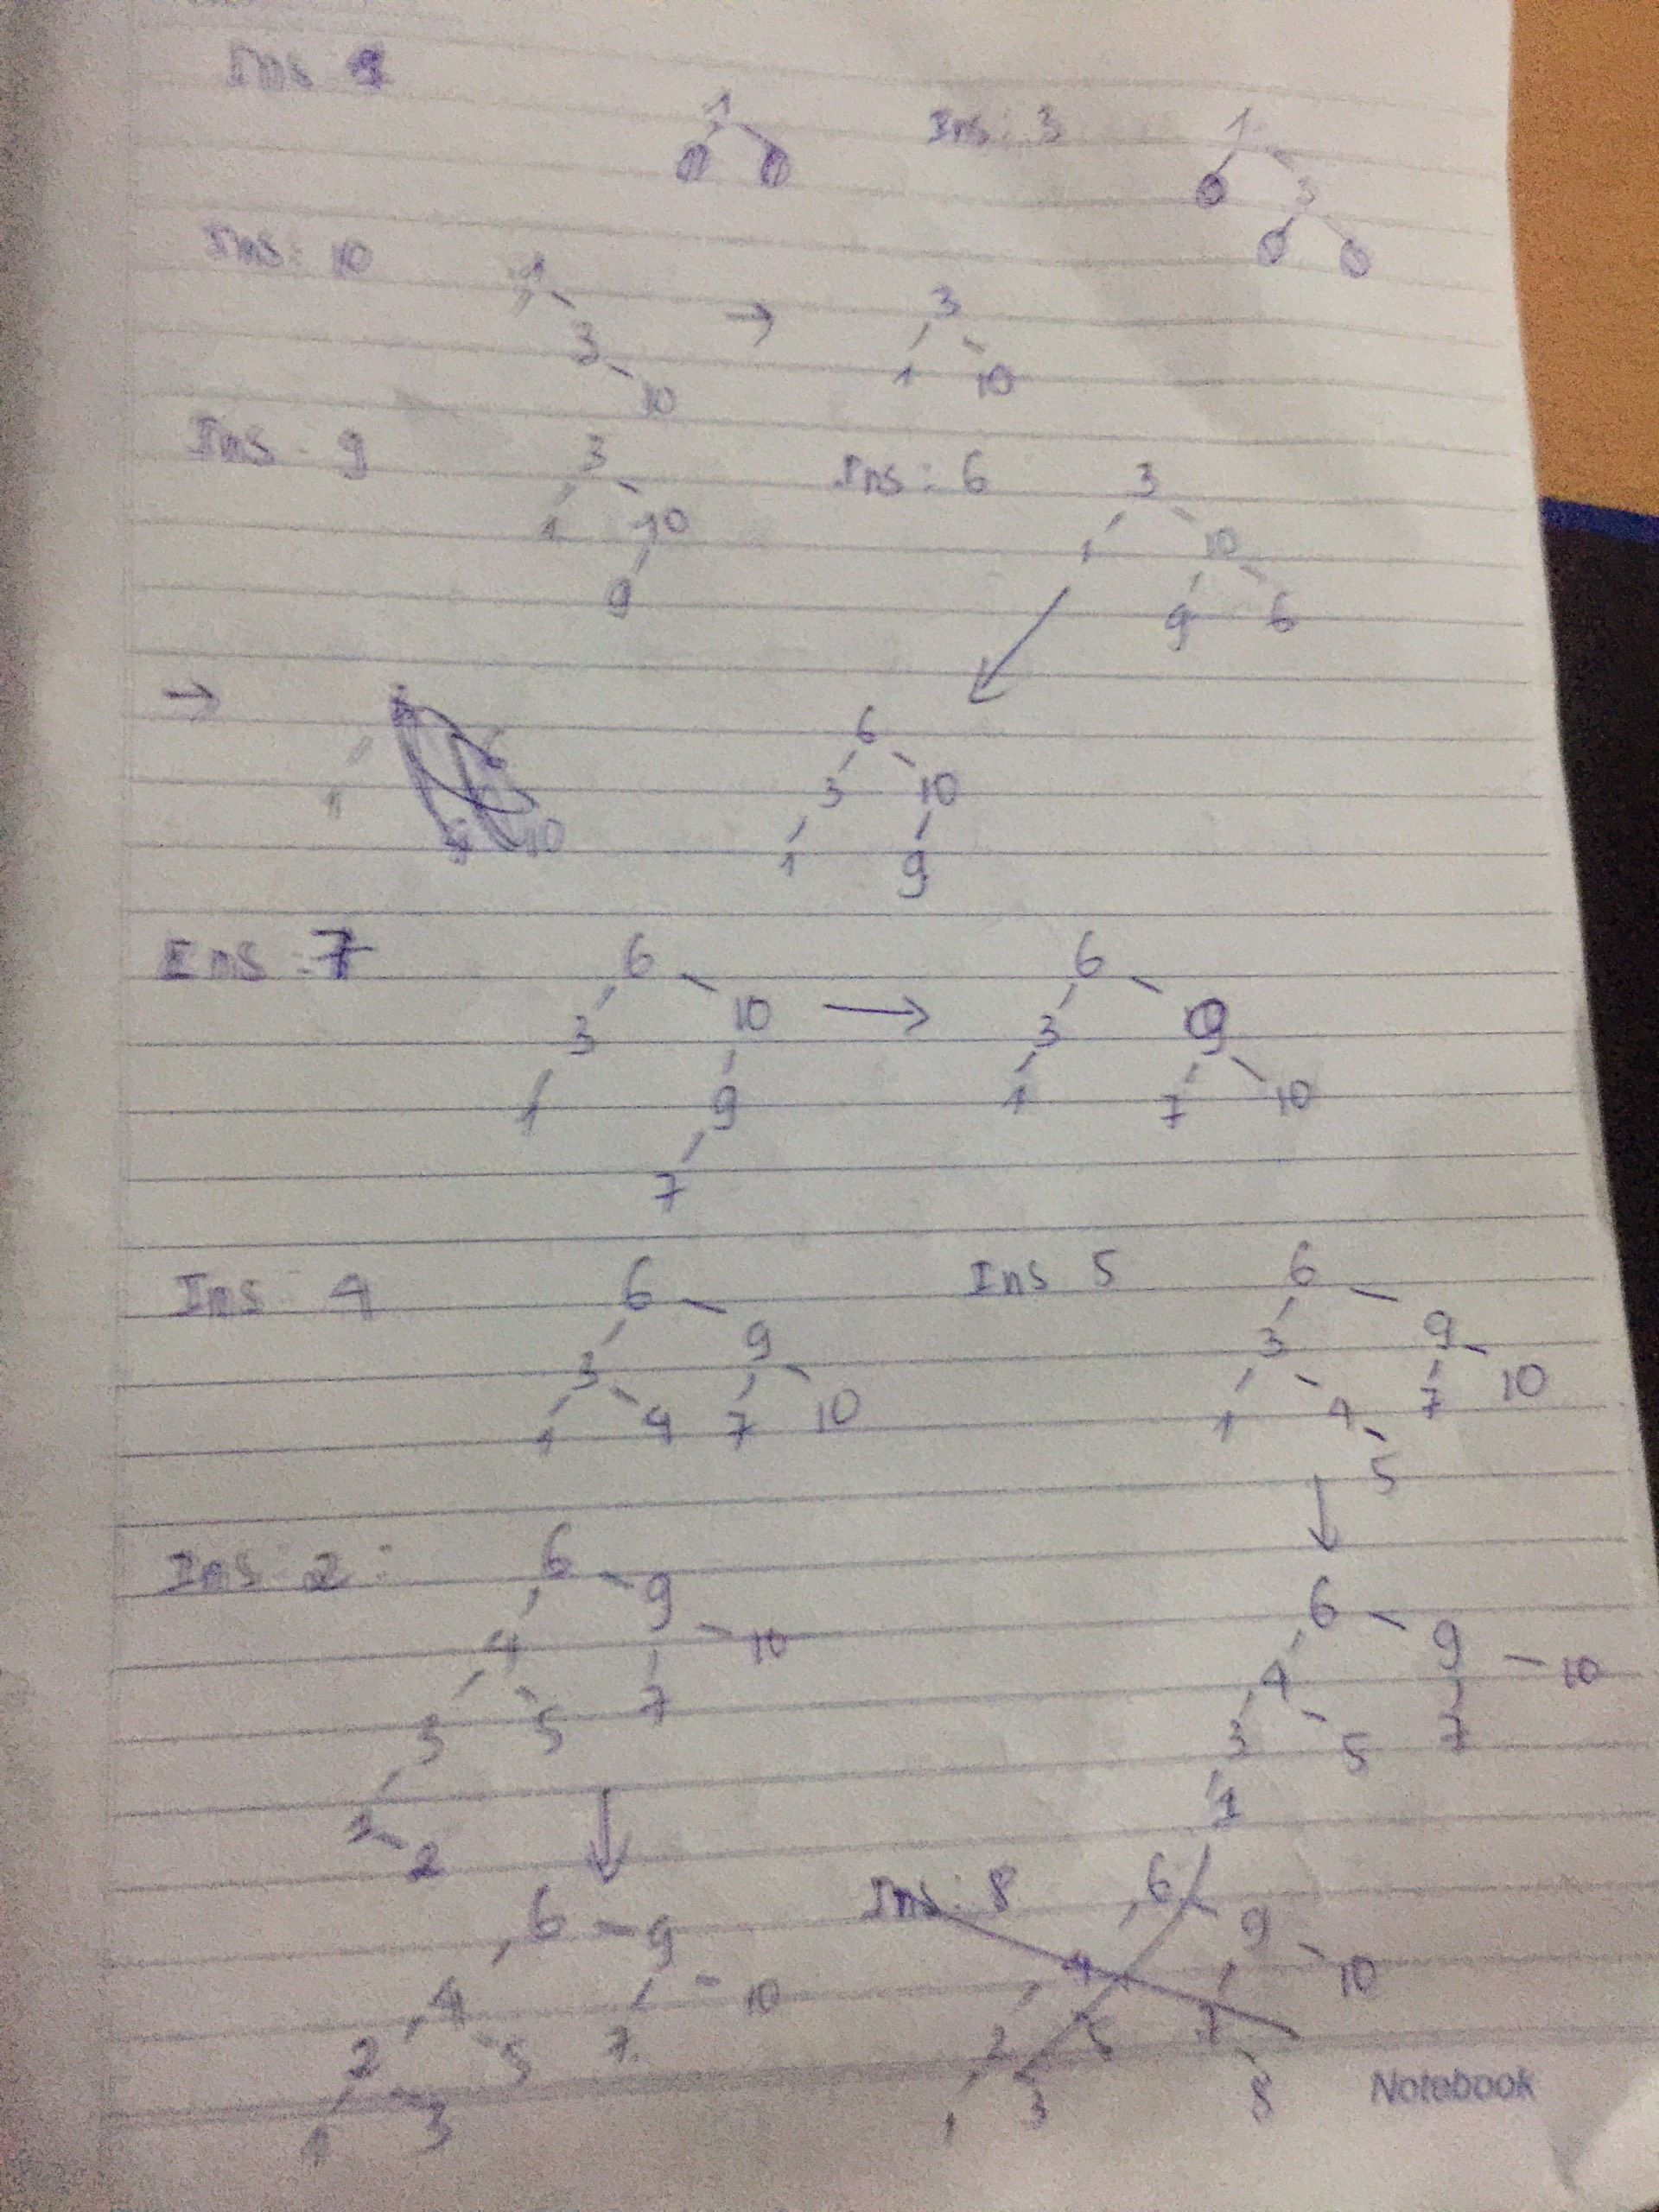 Ins 1
1
0 0
Ins: 3
1
0 3
0 0
Ins: 10
1
3
10
→
3
1 10
Ins: 9
3
1 10
9
Ins: 6
3
1 10
9 6
→
1
10
6
3 10
1 9
Ins: 7
6
3 10
1 9
7
→
6
3 9
1 7 10
Ins 4
6
3 9
1 4 7 10
Ins 5
6
3 9
1 4 7 10
5
↓
6
4 9 10
3 5 7
1
Ins: 2:
6
4 9 10
3 5 7
1 2
↓
6 9
4 10
2 5 7
1 3
Ins: 8
6
9
4 10
2 5 7
1 3 8
Notebook